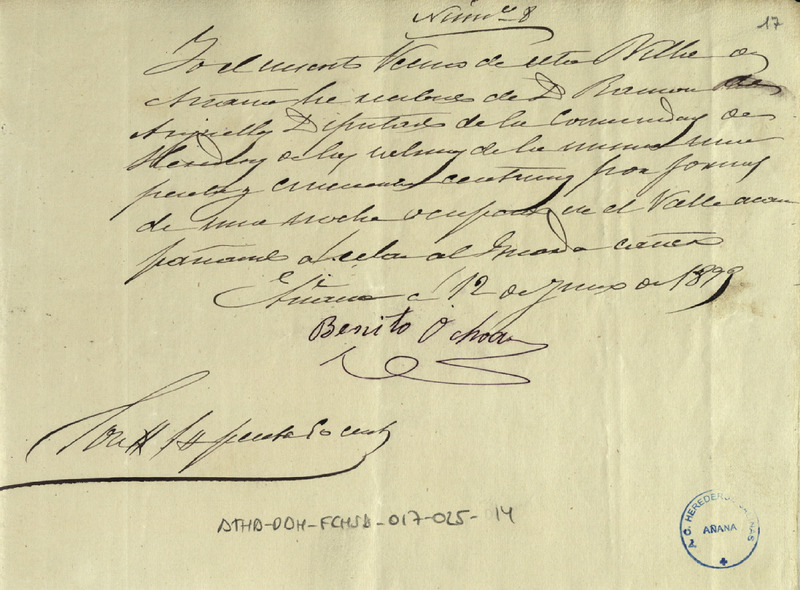 Núm.º 8
17
Yo el infrascrito Vecino de esta Villa de
Añana he recibido de D. Ramon de
Diputado de la Comunidad de
Herederos de las salinas de la misma una
peseta y cincuenta centimos por jornal
de una noche ocupado en el Valle acom
pañando a celar al Guarda
Añana a 12 de Junio de 1899
Benito Ochoa
Son # 1 # peseta 50 cent
ATHA-DAH-FCHSA-017-025-14
AÑANA